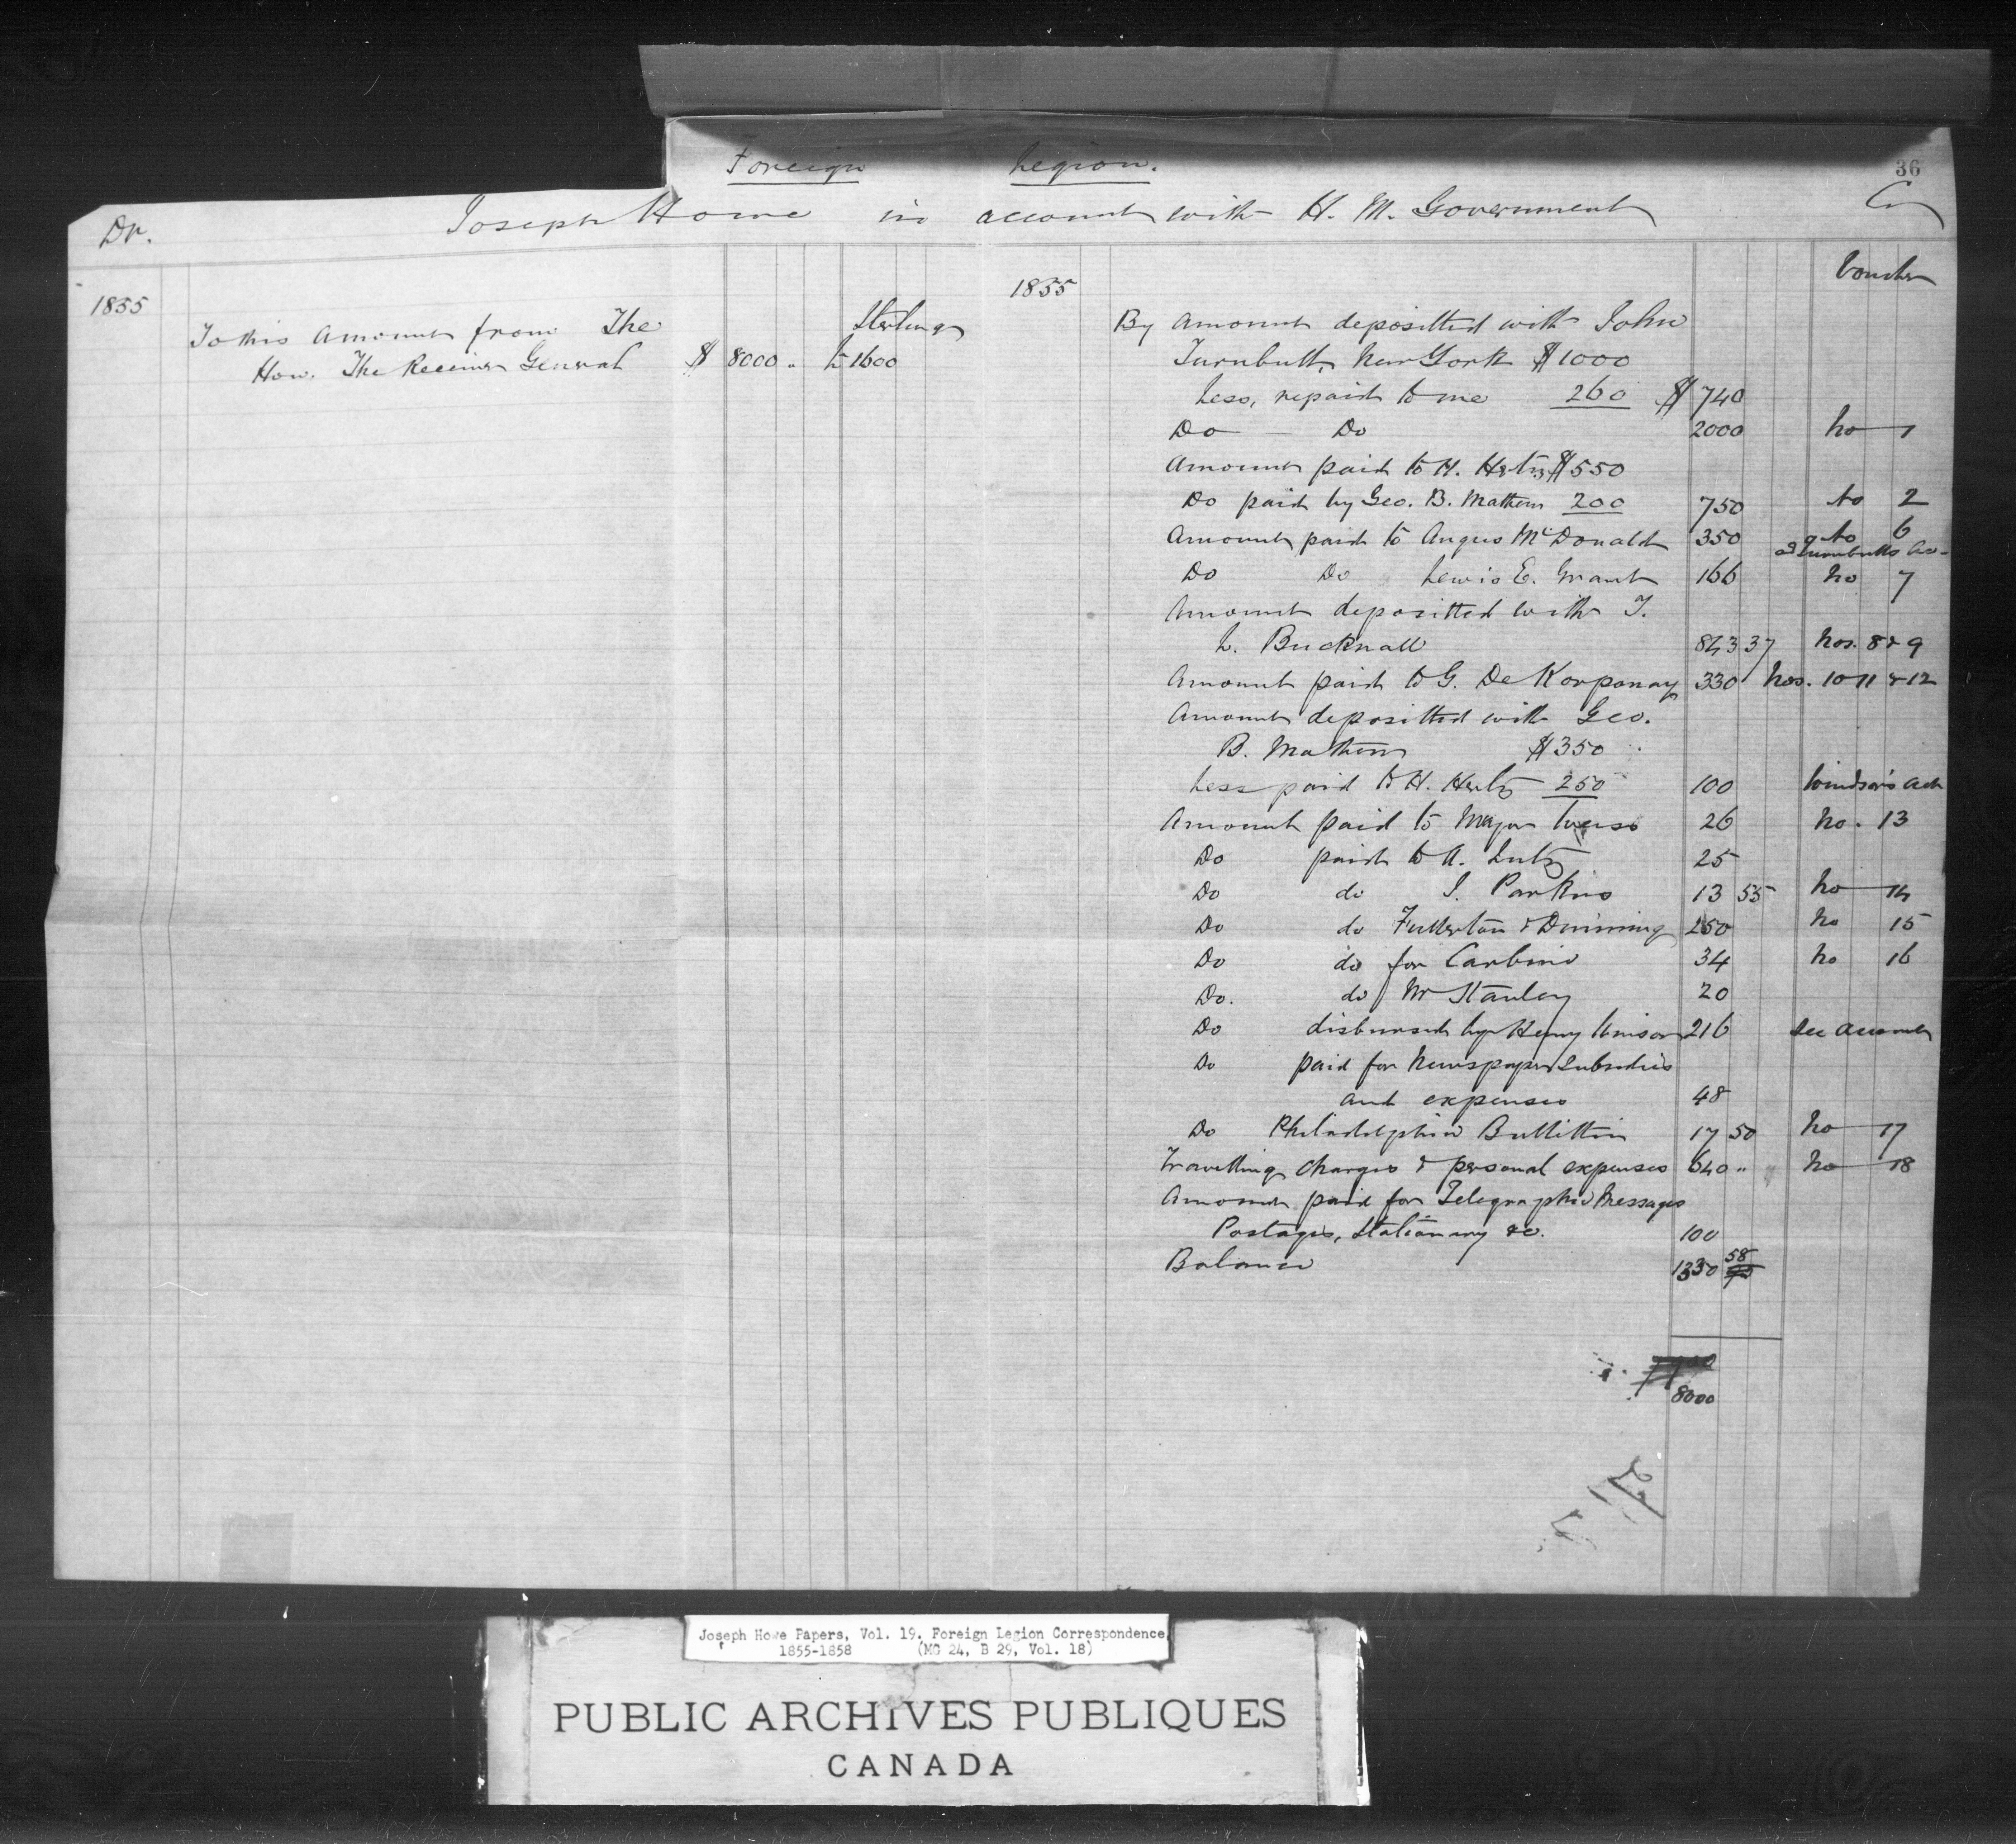 36
Foreign Legion.
Dr. Joseph Howe in account with H. M. Government Cr
1855
To this amount from The
Hon. The Receiver General $ 8000 " Sterling £ 1600
1855 Voucher
By amount depositted with John
Turnbull, New York $1000
Less, repaid to me 260 $ 740
Do Do 2000 No 1
Amount paid to H. Hertz $550
Do paid by Geo. B. Mathew 200 750 No 2
Amount paid to Angus McDonald 350 No 6
Turnbulls Ac
Do Do Lewis E. Grant 166 No 7
Amount depositted with T.
L. Bucknall 843 37 Nos. 8 & 9
Amount paid to G. De Korponay 330 Nos. 10 11 & 12
Amount depositted with Geo.
B. Mathew $350
Less paid to H. Hertz 250 100 Windsor's Act
Amount paid to Major 26 No. 13
Do paid to A. Lutz 25
Do do J. Parkins 13 55 No 14
Do do Fullerton & Dunning 250 No 15
Do do for Carbine 34 No 16
Do. do Mr Stanley 20
Do disbursed by Henry Winsor 216 See Account
Do paid for Newspaper Subsidies
and expenses 48
Do Philadelphia Bullittin 17 50 No 17
Travelling charges & personal expenses 640 " No 18
Amount paid for Telegraphic Messages
Postages, Stationary &c. 100
Balance 1330 58
8000
Joseph Howe Papers, Vol. 19. Foreign Legion Correspondence,
1855-1858 (MG 24, B 29, Vol. 18)
PUBLIC ARCHIVES PUBLIQUES
CANADA